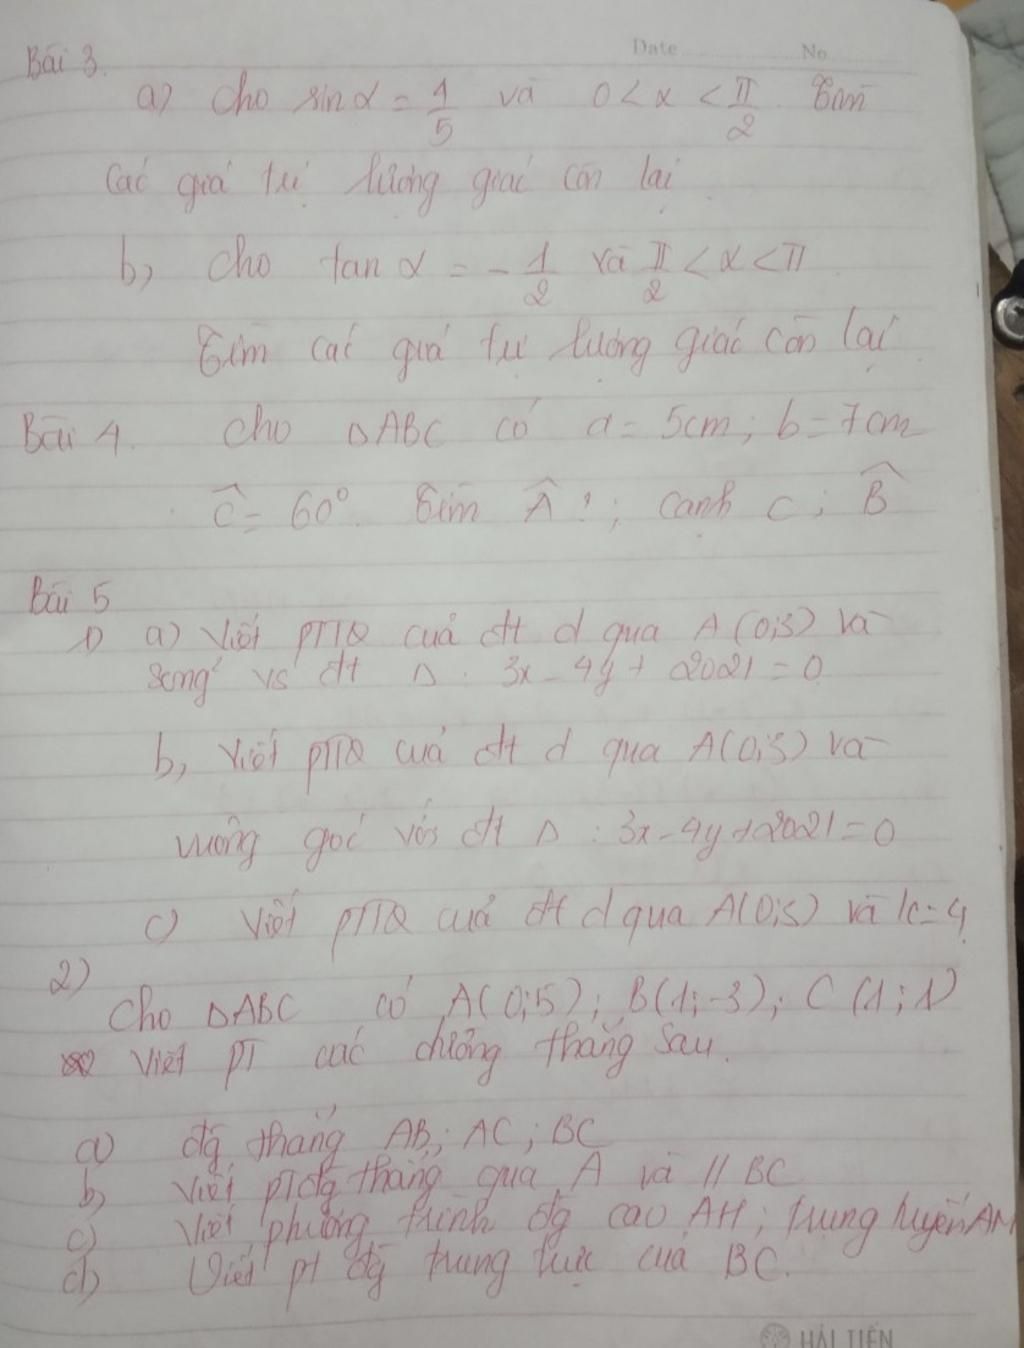 Date No
Bài 3.
a) Cho sinα = 1/5 và 0 < α < π/2 Tìm
Các giá trị lượng giác còn lại
b, Cho tan α = - 1/2 và π/2 < α < π
Tìm các giá trị lượng giác còn lại
Bài 4. Cho ΔABC có a = 5cm; b = 7cm
Ĉ = 60°. Tìm Â ?; cạnh c; B̂
Bài 5
1) a) Viết PTTQ của đt d qua A(0;5) và
song² vs đt Δ : 3x - 4y + 2021 = 0
b, Viết PTTQ của đt d qua A(0;5) và
vuông góc với đt Δ : 3x - 4y + 2021 = 0
c) Viết PTTQ của đt d qua A(0;5) và k = 4
2)
Cho ΔABC có A(0;5); B(1;-3); C(1;1)
Viết PT các đường thẳng sau.
a) đg thẳng AB; AC; BC
b, Viết PTđg thẳng qua A và // BC
c) Viết phương trình đg cao AH; trung tuyến AM
d) Viết pt đg trung trực của BC.
HẢI TIẾN